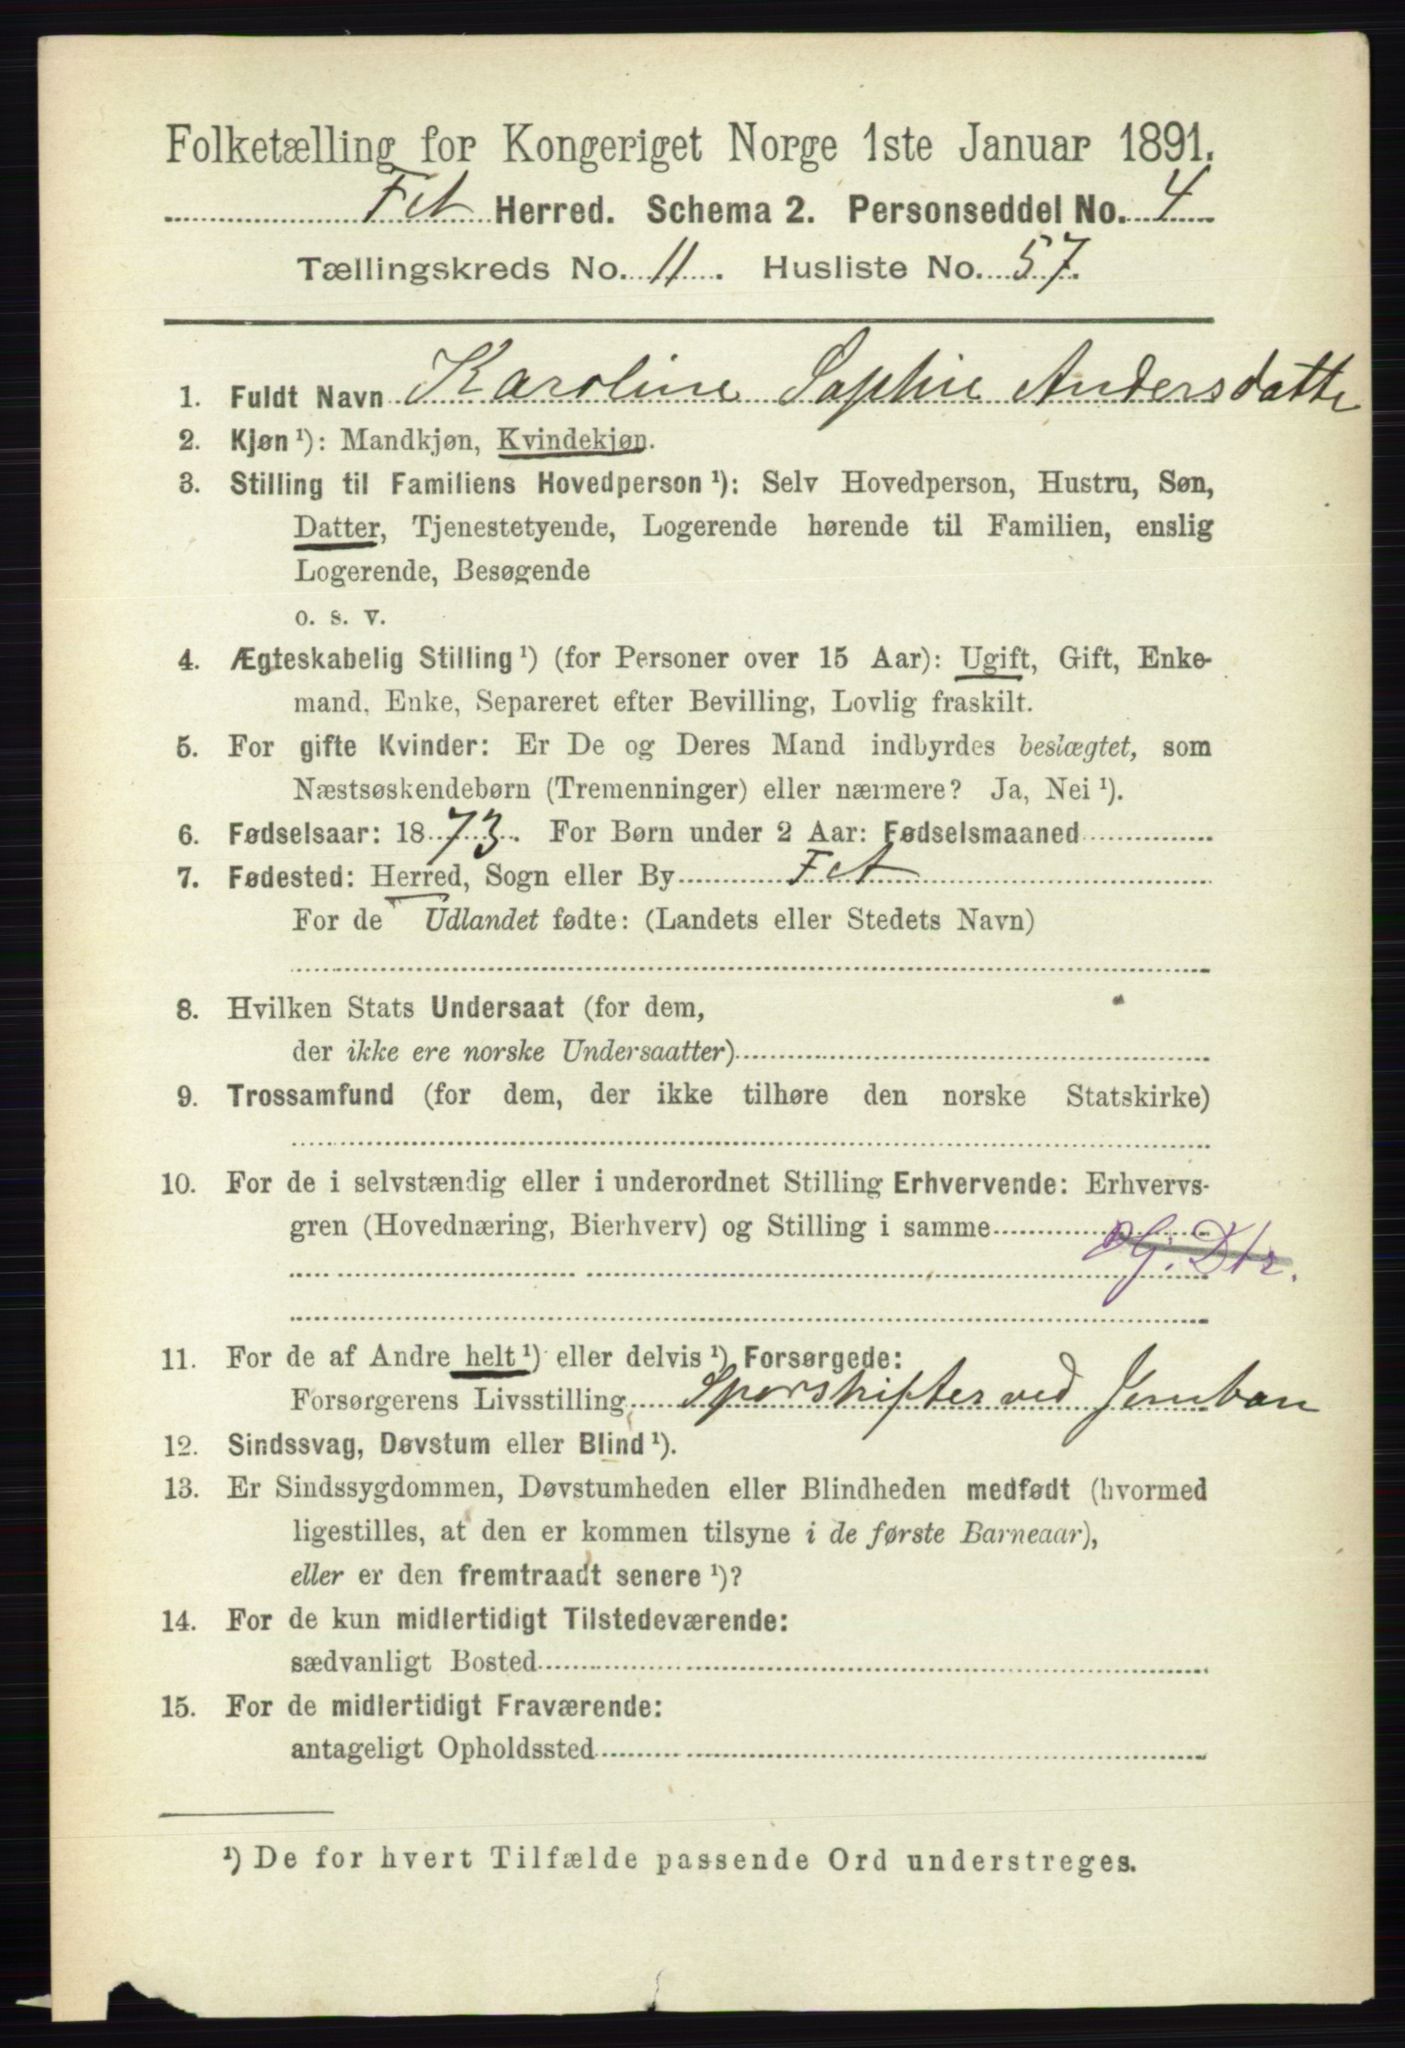 Folketælling for Kongeriget Norge 1ste Januar 1891.
Fet Herred. Schema 2. Personseddel No. 4
Tællingskreds No. 11. Husliste No. 57.
1. Fuldt Navn Karoline Sophie Andersdatte
2. Kjøn ¹): Mandkjøn, Kvindekjøn.
3. Stilling til Familiens Hovedperson ¹): Selv Hovedperson, Hustru, Søn,
Datter, Tjenestetyende, Logerende hørende til Familien, enslig
Logerende, Besøgende
o. s. v.
4. Ægteskabelig Stilling ¹) (for Personer over 15 Aar): Ugift, Gift, Enke-
mand, Enke, Separeret efter Bevilling, Lovlig fraskilt.
5. For gifte Kvinder: Er De og Deres Mand indbyrdes beslægtet, som
Næstsøskendebørn (Tremenninger) eller nærmere? Ja, Nei ¹).
6. Fødselsaar: 1873. For Børn under 2 Aar: Fødselsmaaned
7. Fødested: Herred, Sogn eller By Fet
For de Udlandet fødte: (Landets eller Stedets Navn)
8. Hvilken Stats Undersaat (for dem,
der ikke ere norske Undersaatter)
9. Trossamfund (for dem, der ikke tilhøre den norske Statskirke)
10. For de i selvstændig eller i underordnet Stilling Erhvervende: Erhvervs-
gren (Hovednæring, Bierhverv) og Stilling i samme
G. Dtr.
11. For de af Andre helt ¹) eller delvis ¹) Forsørgede:
Forsørgerens Livsstilling Sporskifter ved Jernban
12. Sindssvag, Døvstum eller Blind ¹).
13. Er Sindssygdommen, Døvstumheden eller Blindheden medfødt (hvormed
ligestilles, at den er kommen tilsyne i de første Barneaar),
eller er den fremtraadt senere ¹)?
14. For de kun midlertidigt Tilstedeværende:
sædvanligt Bosted
15. For de midlertidigt Fraværende:
antageligt Opholdssted
¹) De for hvert Tilfælde passende Ord understreges.